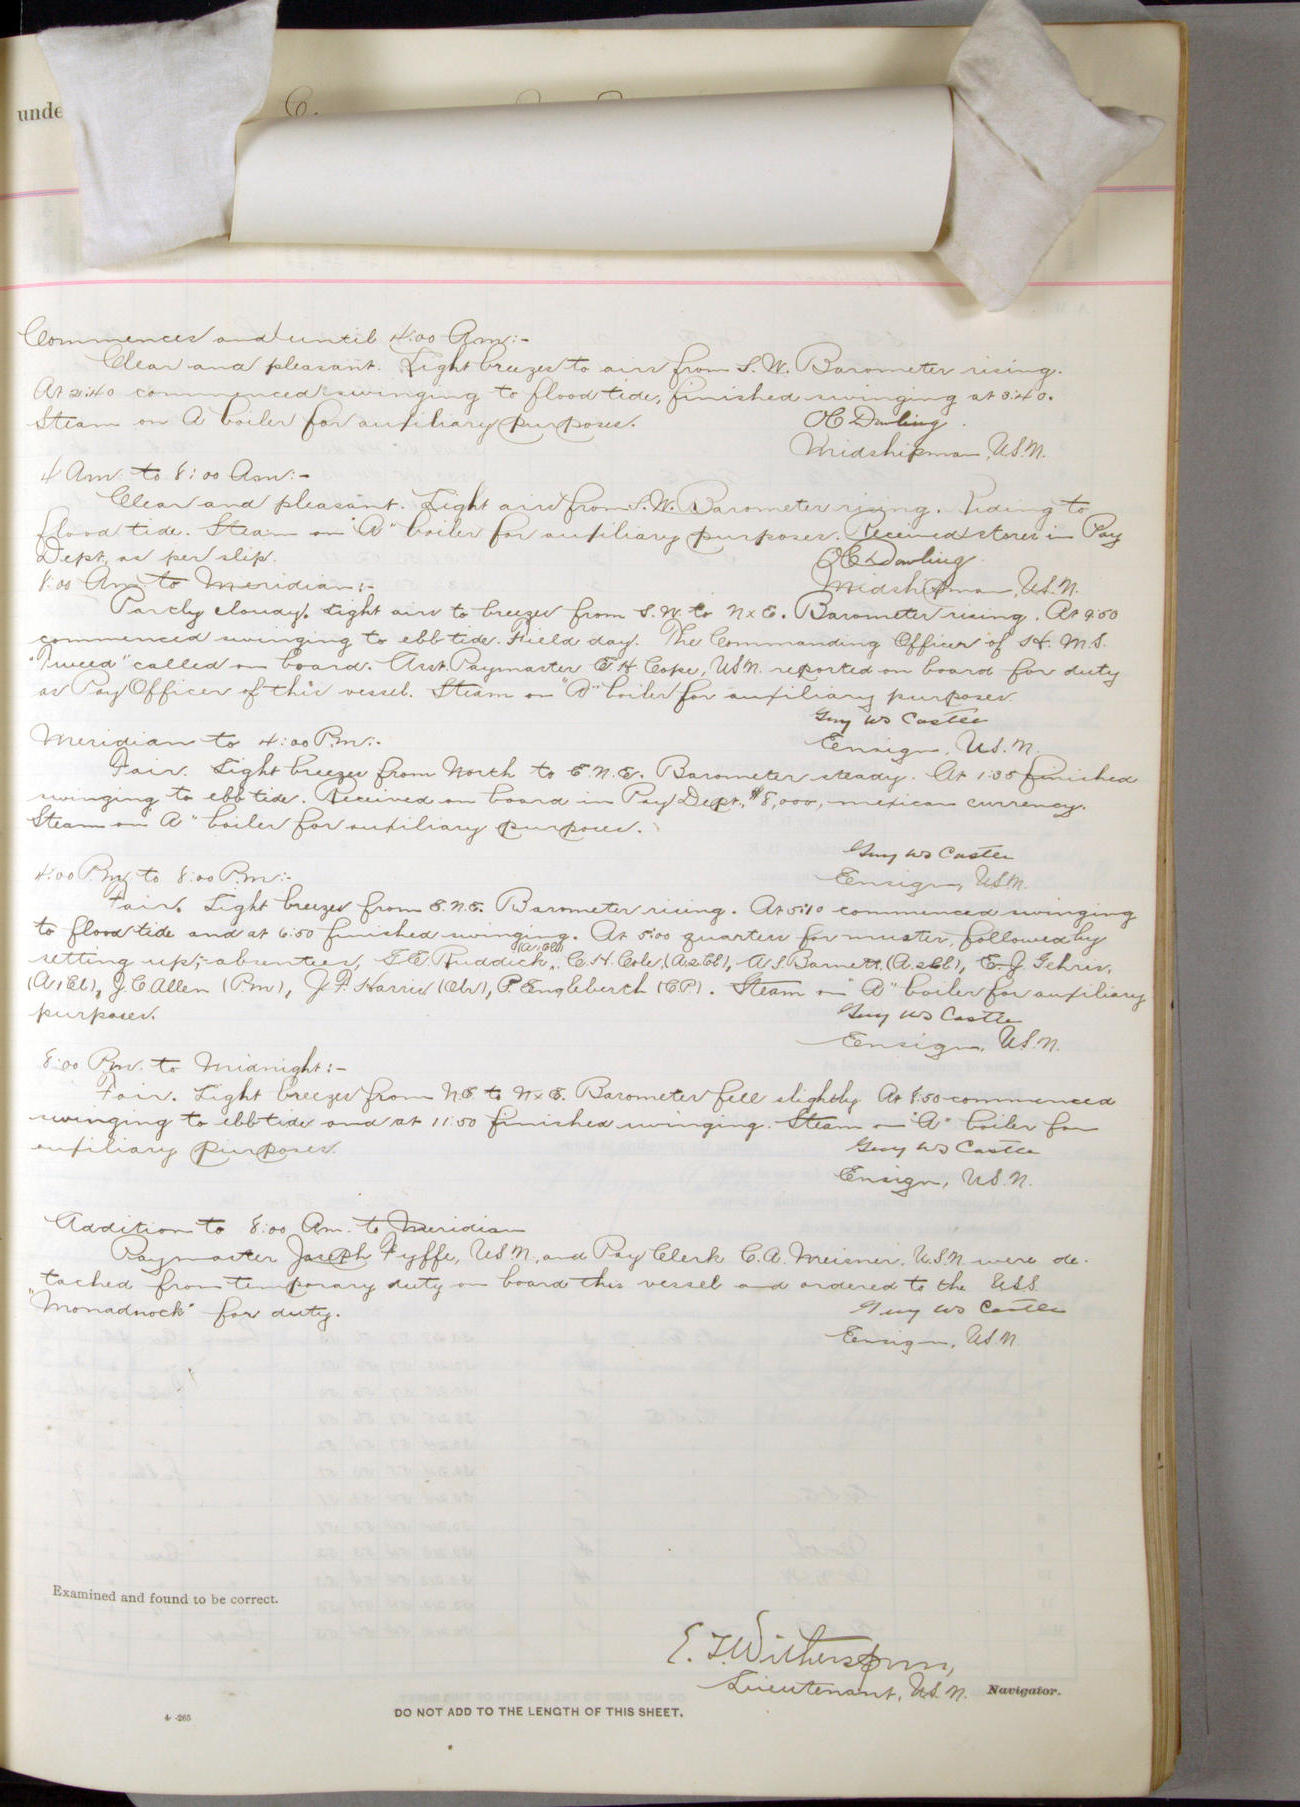 unde
Commences and until 4:00 Am:-
Clear and pleasant. Light breezes to airs from S.W. Barometer rising.
At 2:40 commenced swinging to flood tide, finished swinging at 3:40.
Steam on A boiler for auxiliary purposes.
OC Dowling
Midshipman, U.S.N.
4 Am. to 8:00 Am:-
Clear and pleasant. Light airs from S.W. Barometer rising. Riding to
flood tide. Steam on "A" boiler for auxiliary purposes. Received stores in Pay
Dept. as per slip.
OC Dowling
Midshipman, U.S.N.
8:00 Am to Meridian:-
Partly cloudy. Light airs to breezes from S.W. to NxE. Barometer rising. At 9:50
commenced swinging to ebb tide. Field day. The Commanding Officer of H.M.S.
"Tweed" called on board. Asst Paymaster E H Cope, USN. reported on board for duty
as Pay Officer of this vessel. Steam on "A" boiler for auxiliary purposes.
Guy WS Castle
Ensign, U.S.N.
Meridian to 4:00 P.m:-
Fair. Light breezes from North to E.N.E. Barometer steady. At 1:35 finished
swinging to ebb tide. Received on board in Pay Dept., $8,000, mexican currency.
Steam on A" boiler for auxiliary purposes.
Guy WS Castle
Ensign, USN.
4:00 P.m. to 8:00 P.m:-
Fair. Light breezes from E.N.E. Barometer rising. At 5:10 commenced swinging
to flood tide and at 6:50 finished swinging. At 5:00 quarters for muster, followed by
setting up;- absentees, Ruddick, C.H. Coles, A.S. Barnett, E.J. Gehris,
J C Allen (Pm), J.F. Harris P. Engleberth (CP). Steam on "A" boiler for auxiliary
purposes.
Guy WS Castle
Ensign, U.S.N.
8:00 P.m. to Midnight:-
Fair. Light breezes from NE to NxE. Barometer fell slightly. At 8:50 commenced
swinging to ebb tide and at 11:50 finished swinging. Steam on "A" boiler for
auxiliary purposes.
Guy WS Castle
Ensign, U.S.N.
Addition to 8:00 Am. to Meridian
Paymaster Joseph Fyffe, U.S.N., and Pay Clerk C.A. Meisner, U.S.N were de-
tached from temporary duty on board this vessel and ordered to the U.S.S.
"Monadnock" for duty.
Guy WS Castle
Ensign, U.S.N.
Examined and found to be correct.
E. T. Witherspoon,
Lieutenant, U.S.N. Navigator.
DO NOT ADD TO THE LENGTH OF THIS SHEET.
4-265